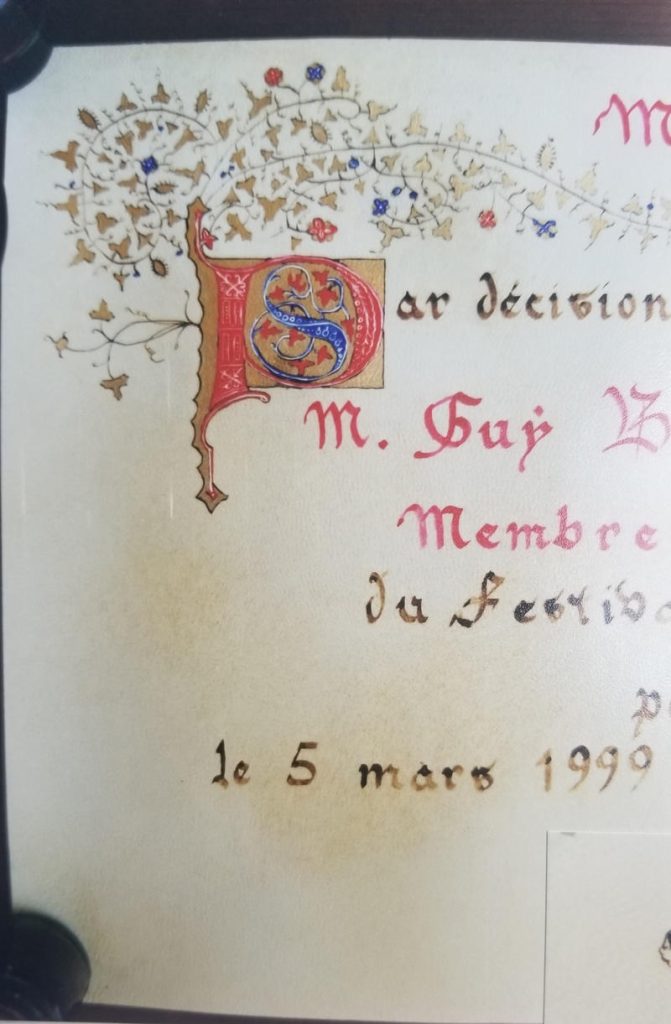 M
Par décision
M. Guy B
Membre
du Festiva
p
le 5 mars 1999